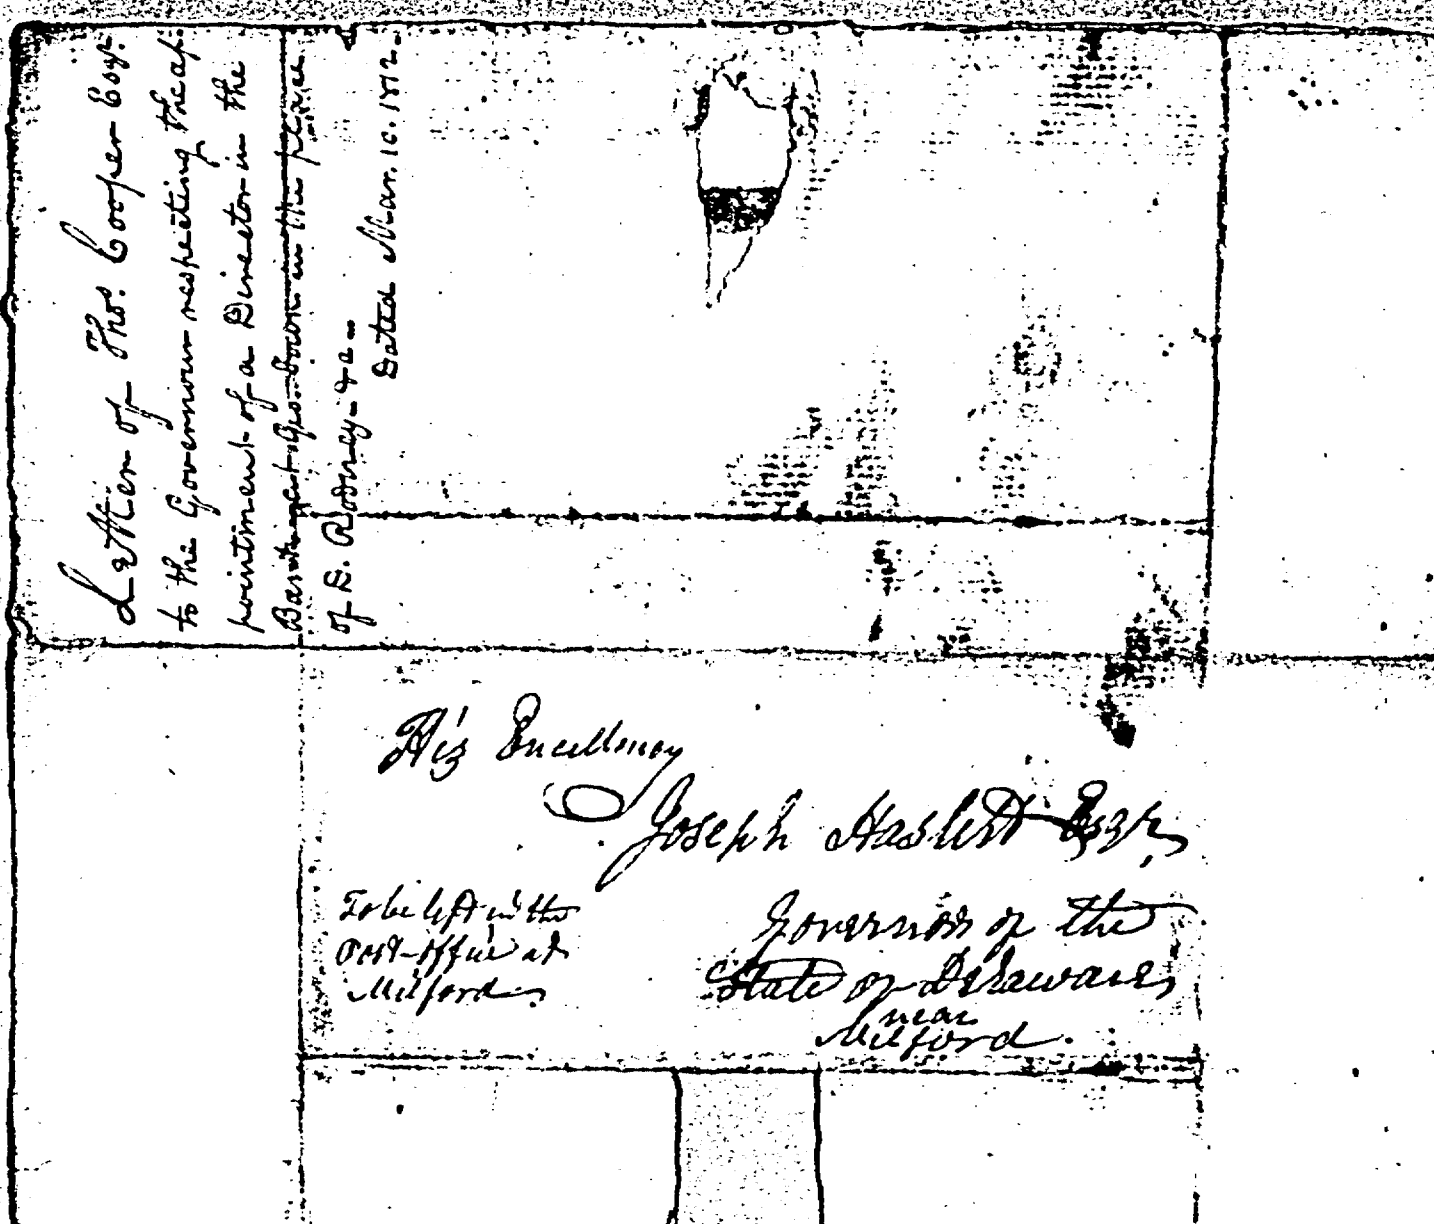 Letter of Thos. Cooper Esqr.
to the Governour respecting the ap-
pointment of a Director in the
Bank at Geo. Town in the place
of D. Rodney &a—
Dated Mar. 10. 1812.
His Excellency
Joseph Haslett Esqr,
Governor of the
State of Delaware,
near
Milford.
To be left in the
Post-office at
Milford.